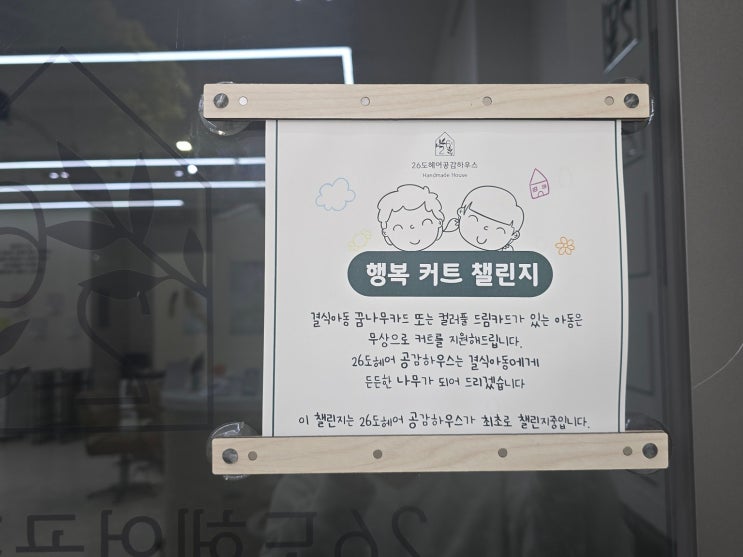 26도헤어공감하우스
Handmade House
행복 커트 챌린지
결식아동 꿈나무카드 또는 컬러풀 드림카드가 있는 아동은
무상으로 커트를 지원해드립니다.
26도헤어 공감하우스는 결식아동에게
든든한 나무가 되어 드리겠습니다
이 챌린지는 26도헤어 공감하우스가 최초로 챌린지중입니다.
26도헤어공